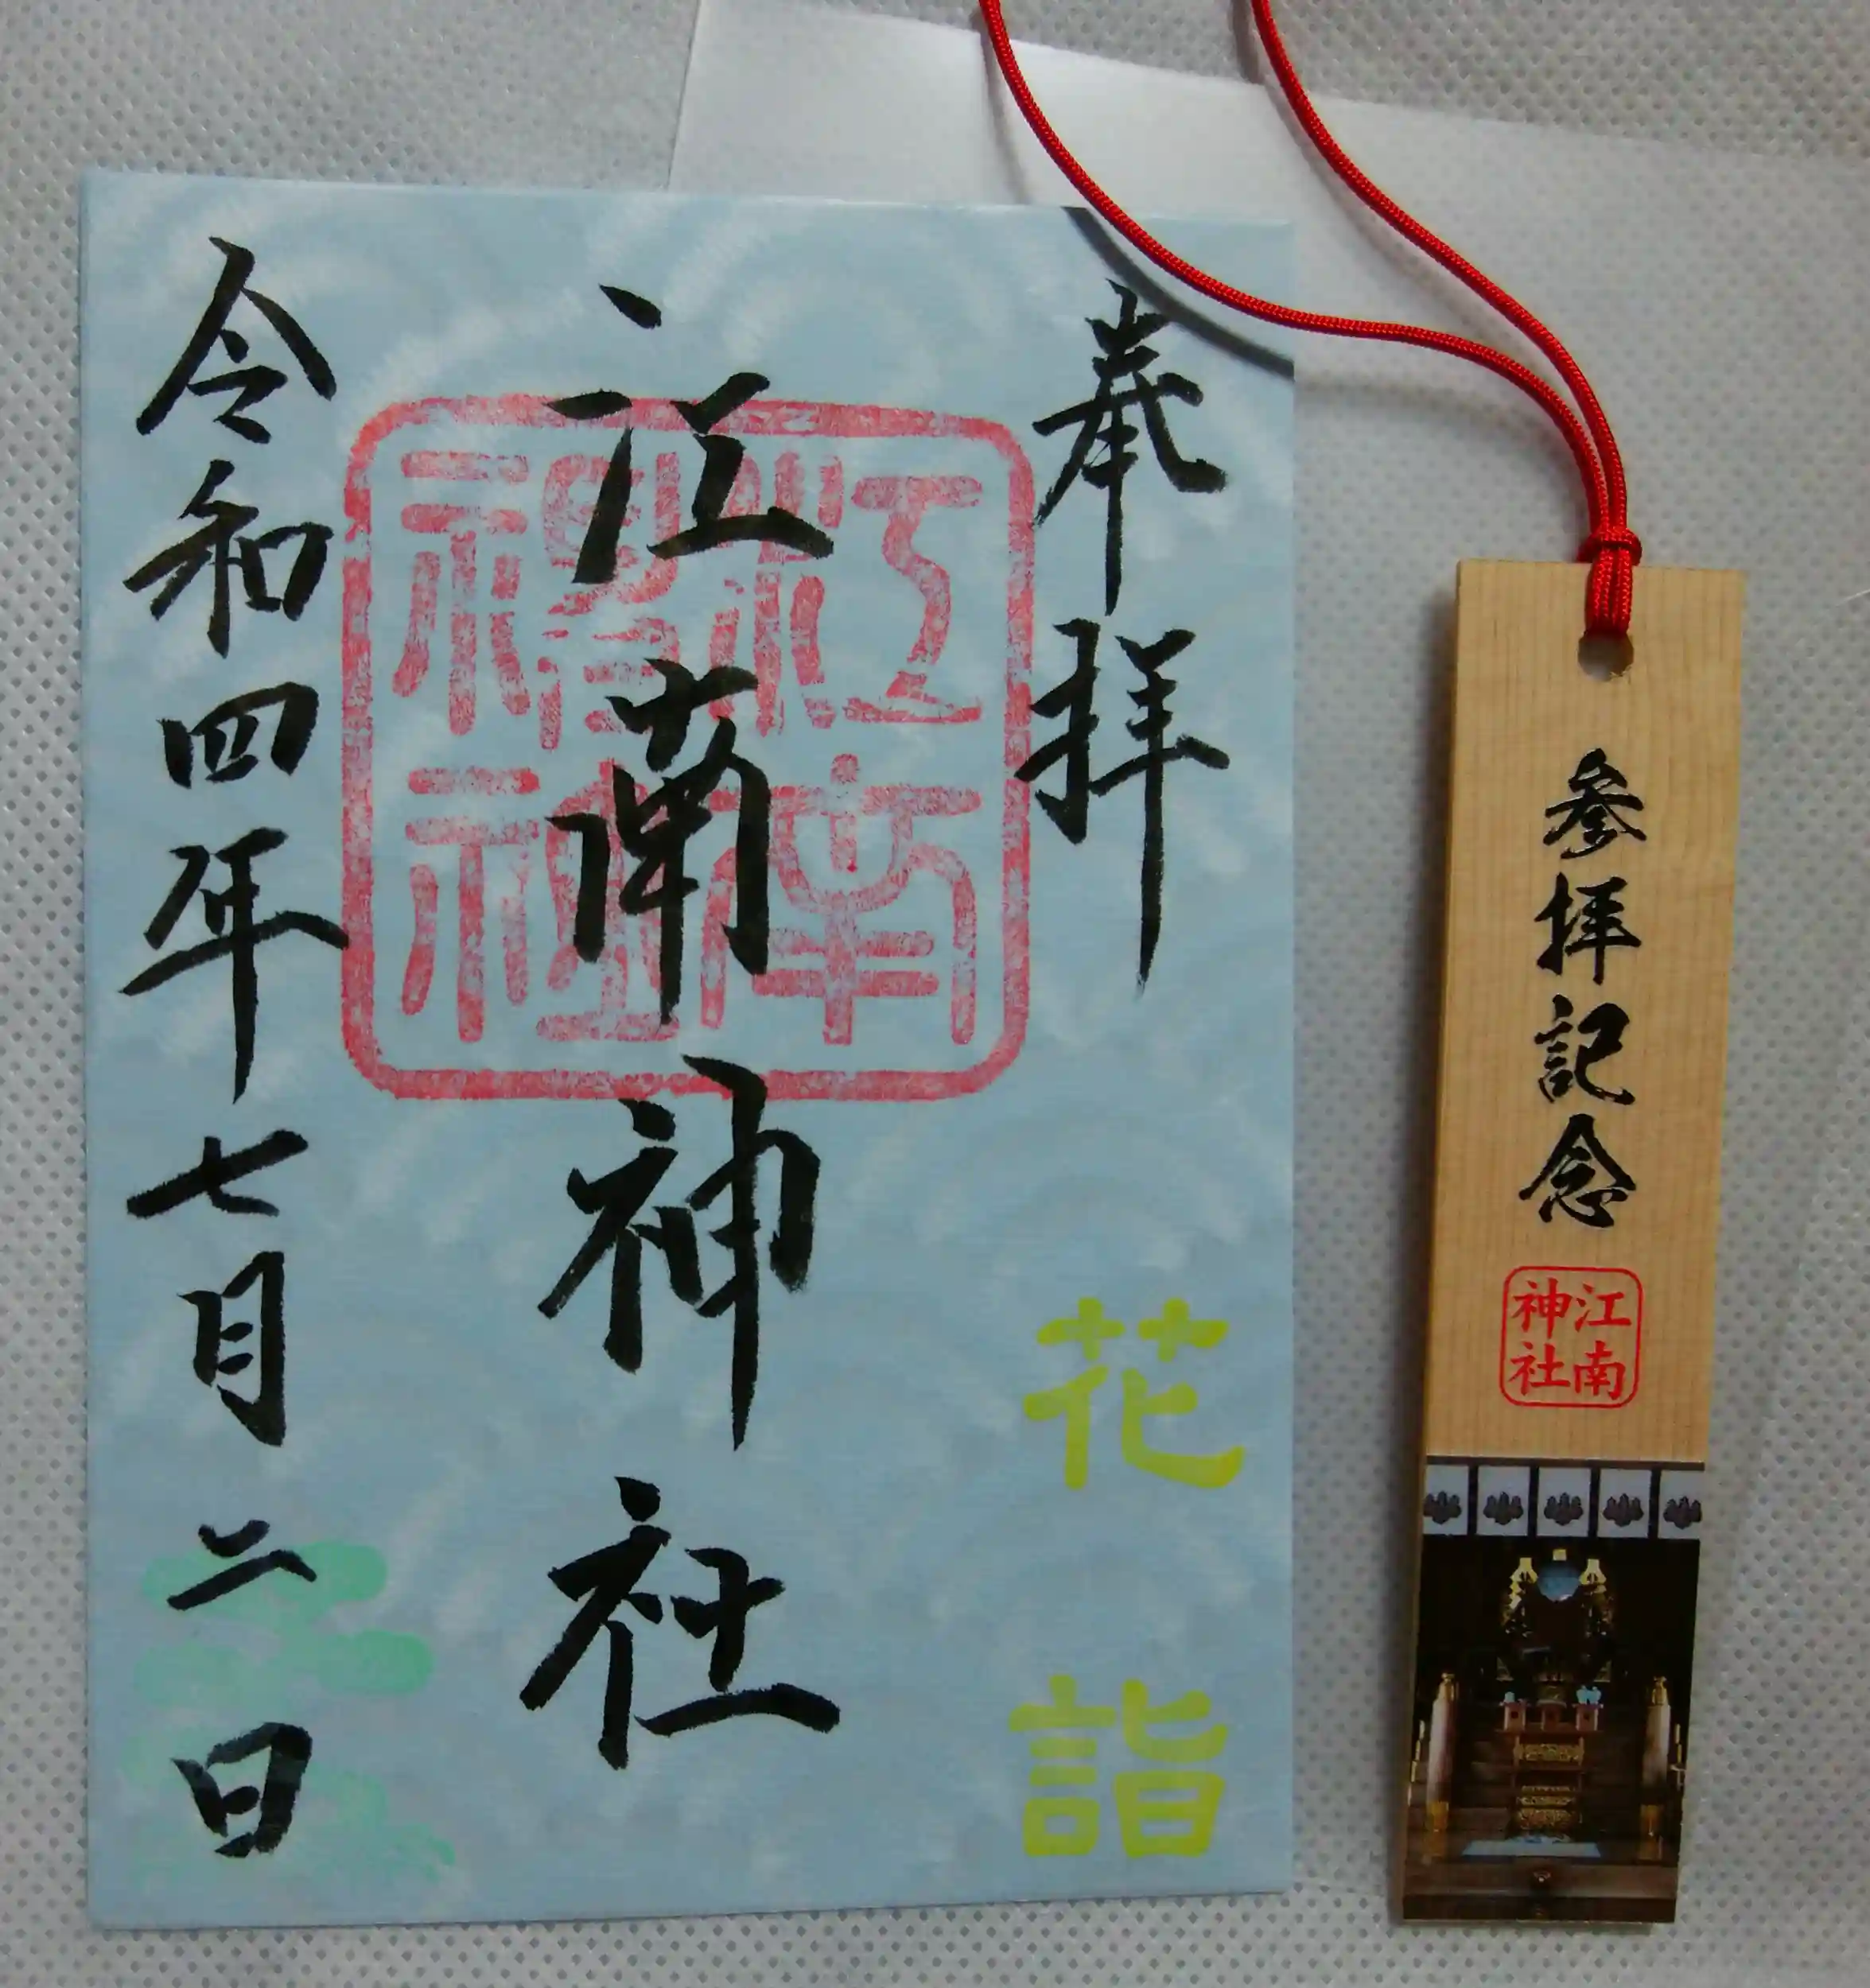 奉拝
花詣
江南神社
江南
神社
令和四年七月二日
参拝記念
江南
神社